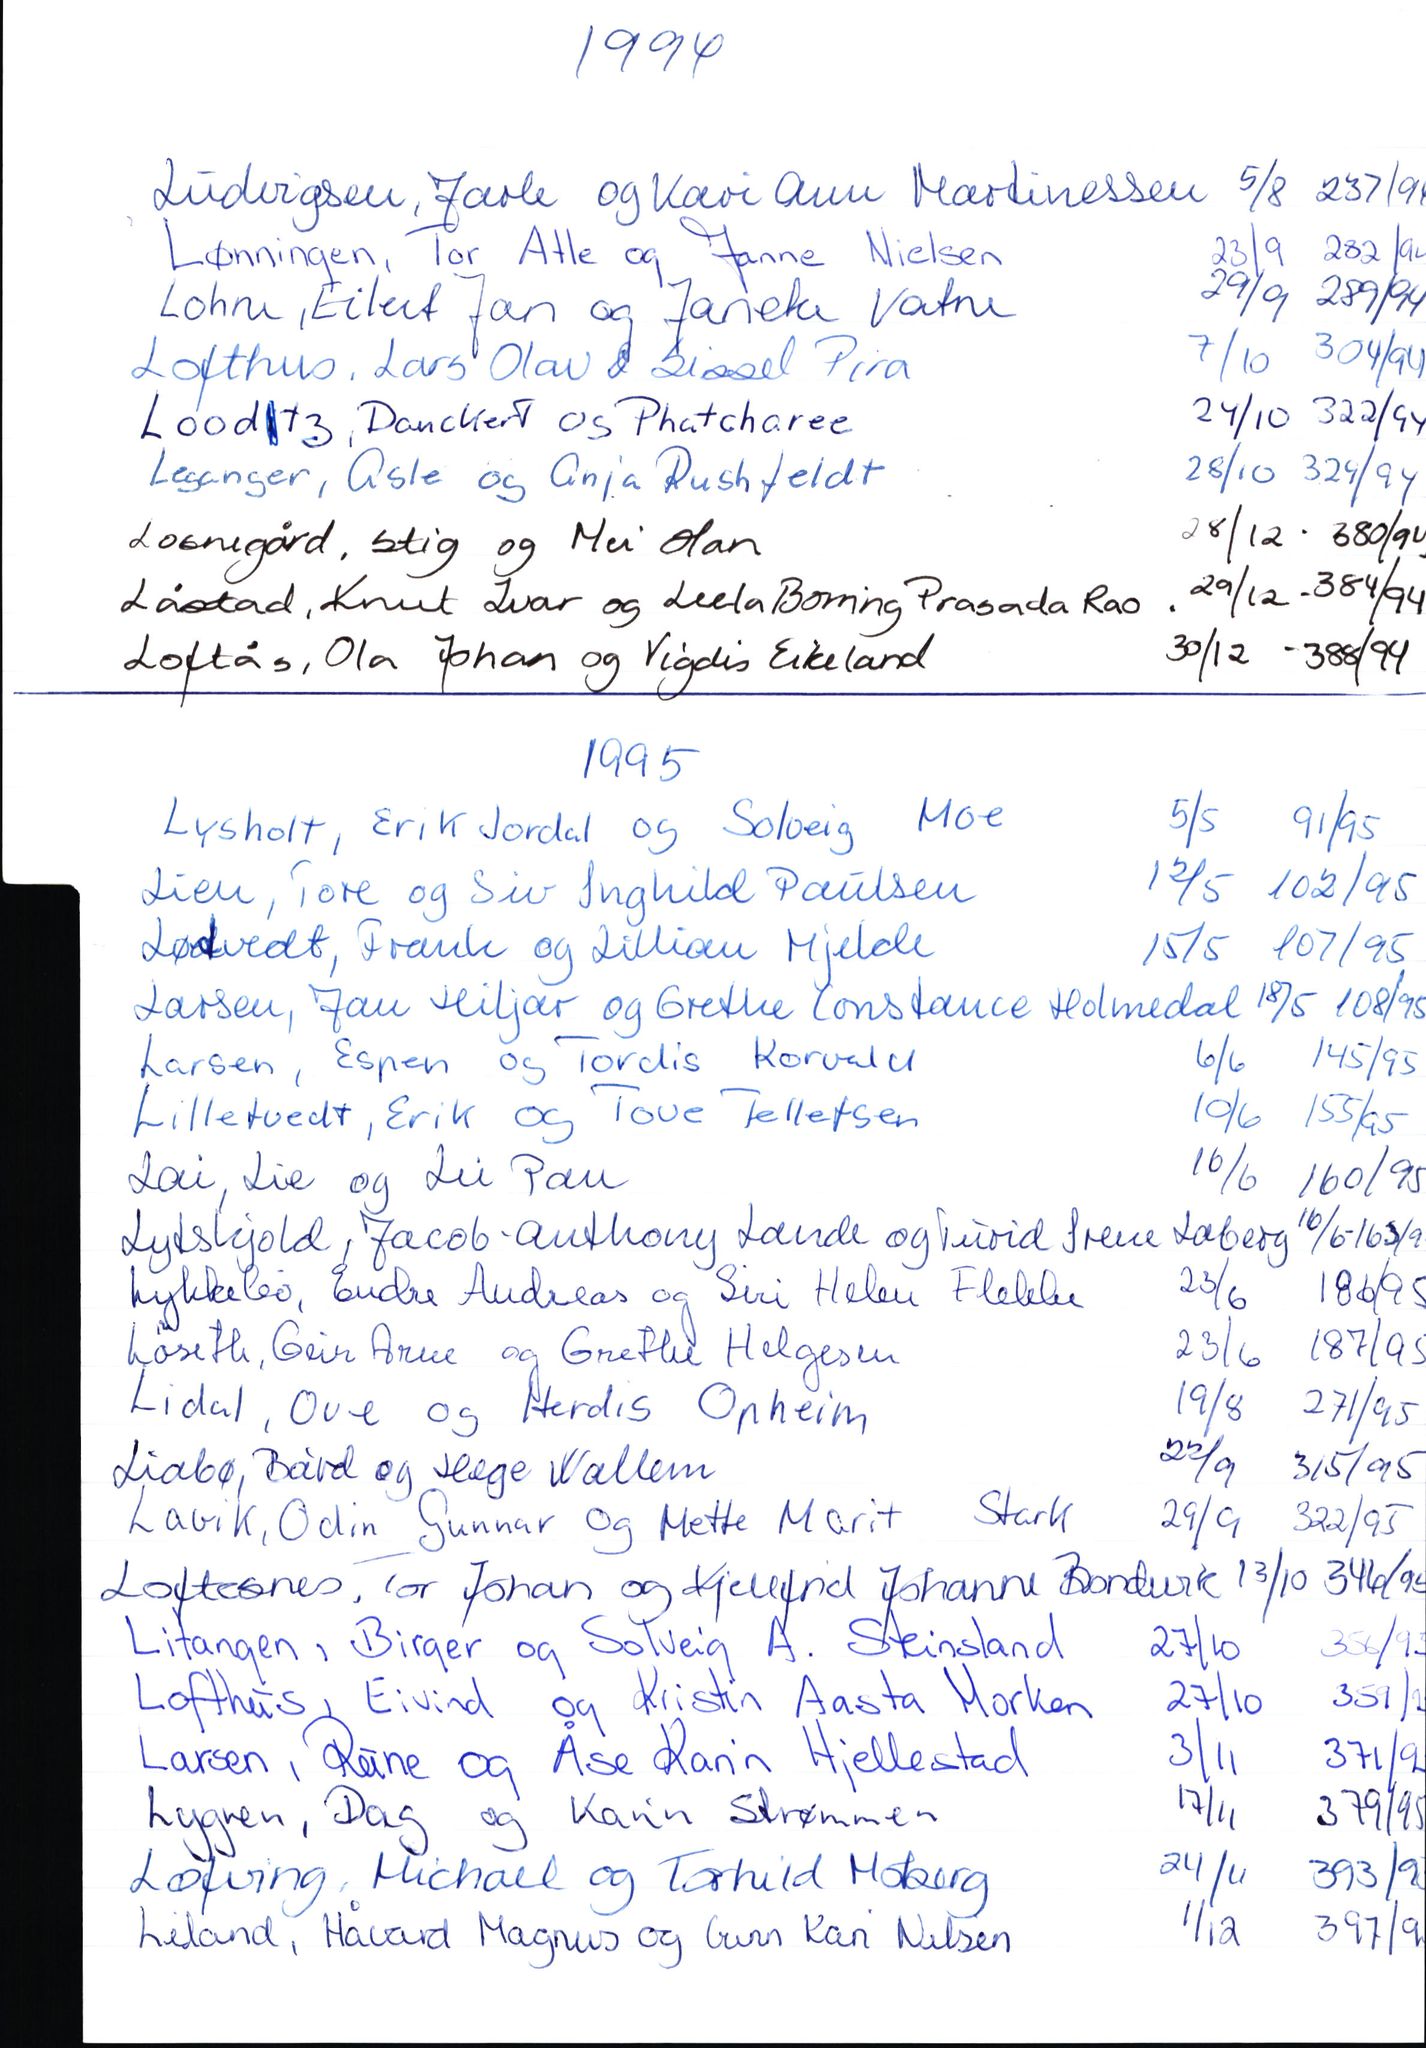 1994
Ludvigsen, Jarle og Kari Ann Martinessen 5/8 237/94
Lønningen, Tor Atle og Janne Nielsen 23/9 282/94
Lohne, Eilert Jan og Janeke Vatne 29/9 289/94
Lofthus, Lars Olav & Sissel Pira 7/10 304/94
Looditz, Danckert og Phatcharee 24/10 322/94
Leganger, Asle og Anja Rushfeldt 28/10 324/94
Losnegård, Stig og Mei Olan 28/12 - 380/94
Låstad, Knut Ivar og Leela Borring Prasada Rao . 29/12 - 384/94
Loftås, Ola Johan og Vigdis Eikeland 30/12 - 388/94
1995
Lysholt, Erik Jordal og Solveig Moe 5/5 91/95
Lien, Tore og Siv Inghild Paulsen 12/5 102/95
Lødvedt, Frank og Lillian Mjelde 15/5 107/95
Larsen, Jan Hiljar og Grethe Constance Holmedal 18/5 108/95
Larsen, Espen og Tordis Korvald 6/6 145/95
Lilletvedt, Erik og Tove Tellefsen 10/6 155/95
Lai, Lie og Lii Pan 16/6 160/95
Lytskjold, Jacob-Anthony Lande og Turid Irene Laberg 16/6-163/9
Lykkebø, Endre Andreas og Siri Helen Flekke 23/6 186/95
Løseth, Geir Arne og Grethe Helgesen 23/6 187/95
Lidal, Ove og Herdis Opheim 19/8 271/95
Liabø, Bård og Hege Wallem 22/9 315/95
Lavik, Odin Gunnar og Mette Marit Stark 29/9 322/95
Loftesnes, Tor Johan og Kjellfrid Johanne Bondevik 13/10 346/95
Litangen, Birger og Solveig A. Steinsland 27/10 356/95
Lofthus, Eivind og Kristin Aasta Morken 27/10 359/9
Larsen, Rune og Åse Karin Hjellestad 3/11 371/9
Lygren, Dag og Karin Strømmen 17/11 379/95
Løfving, Michael og Torhild Moberg 24/11 393/9
Leland, Håvard Magnus og Gunn Kari Nilsen 1/12 397/9